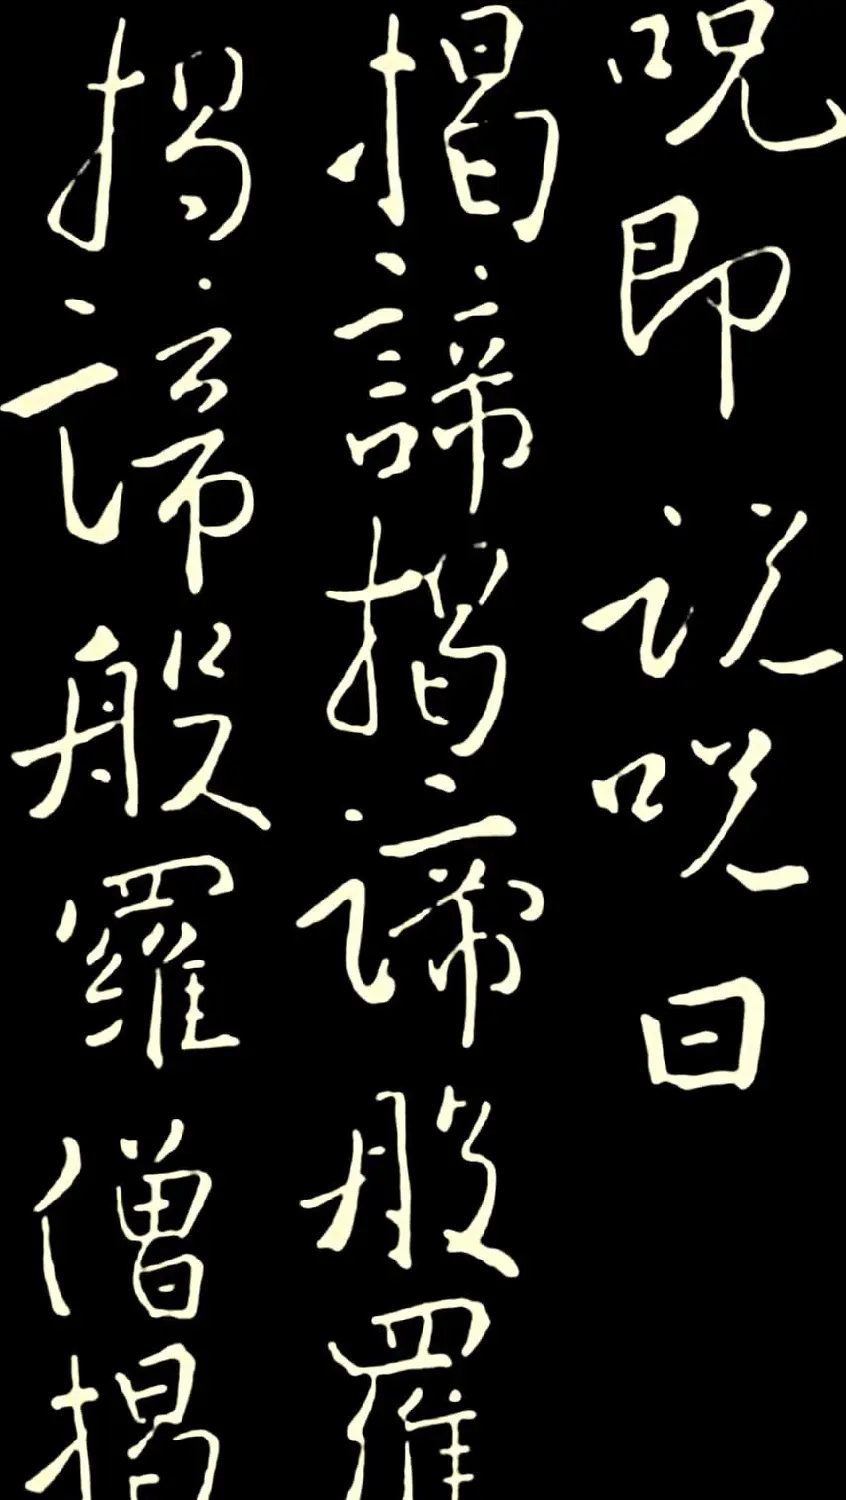 呪即説呪曰
揭諦揭諦般羅
揭諦般羅僧揭